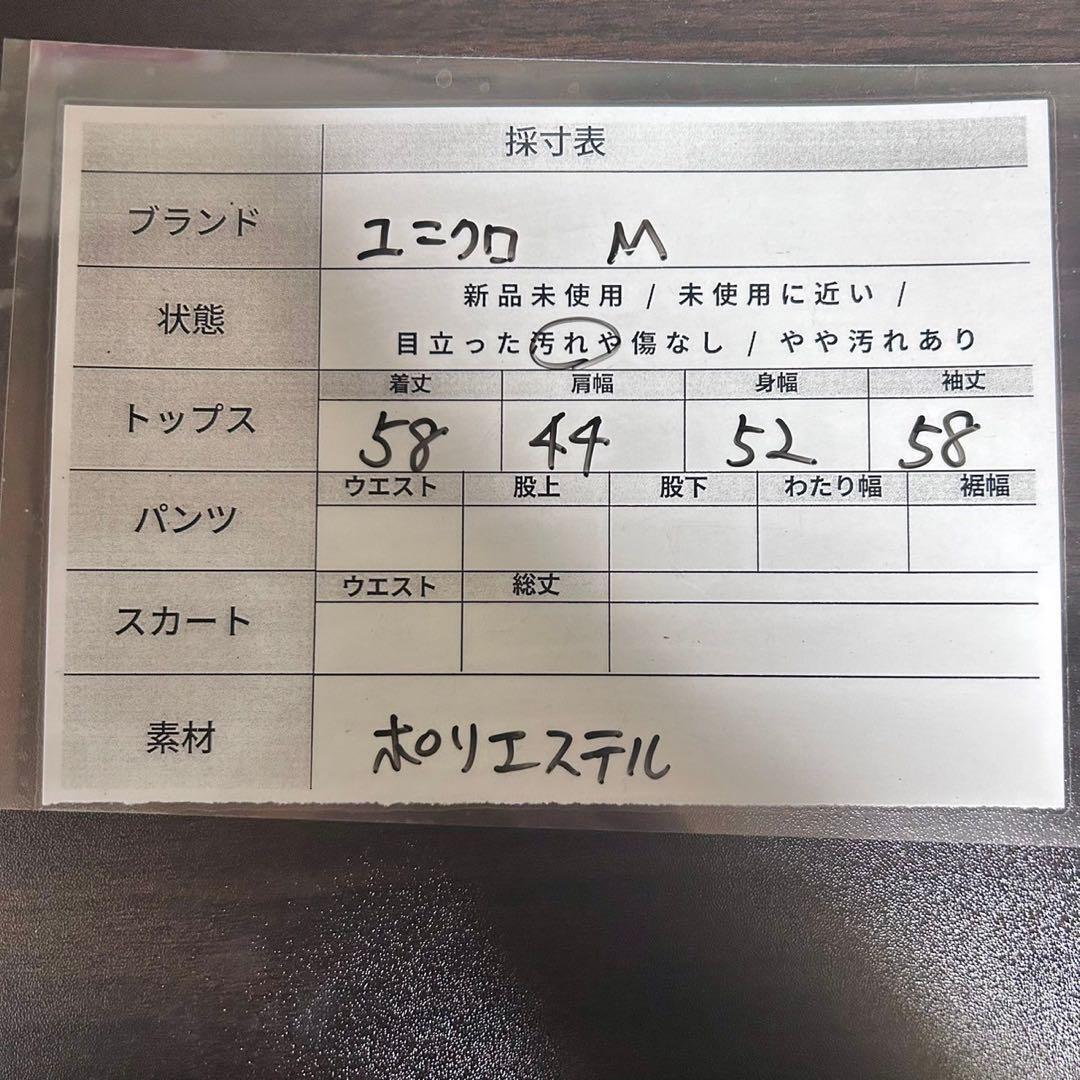 採寸表
ブランド ユニクロ M
状態 新品未使用 / 未使用に近い /
目立った汚れや傷なし / やや汚れあり
トップス 着丈 肩幅 身幅 袖丈
58 44 52 58
パンツ ウエスト 股上 股下 わたり幅 裾幅
スカート ウエスト 総丈
素材 ポリエステル